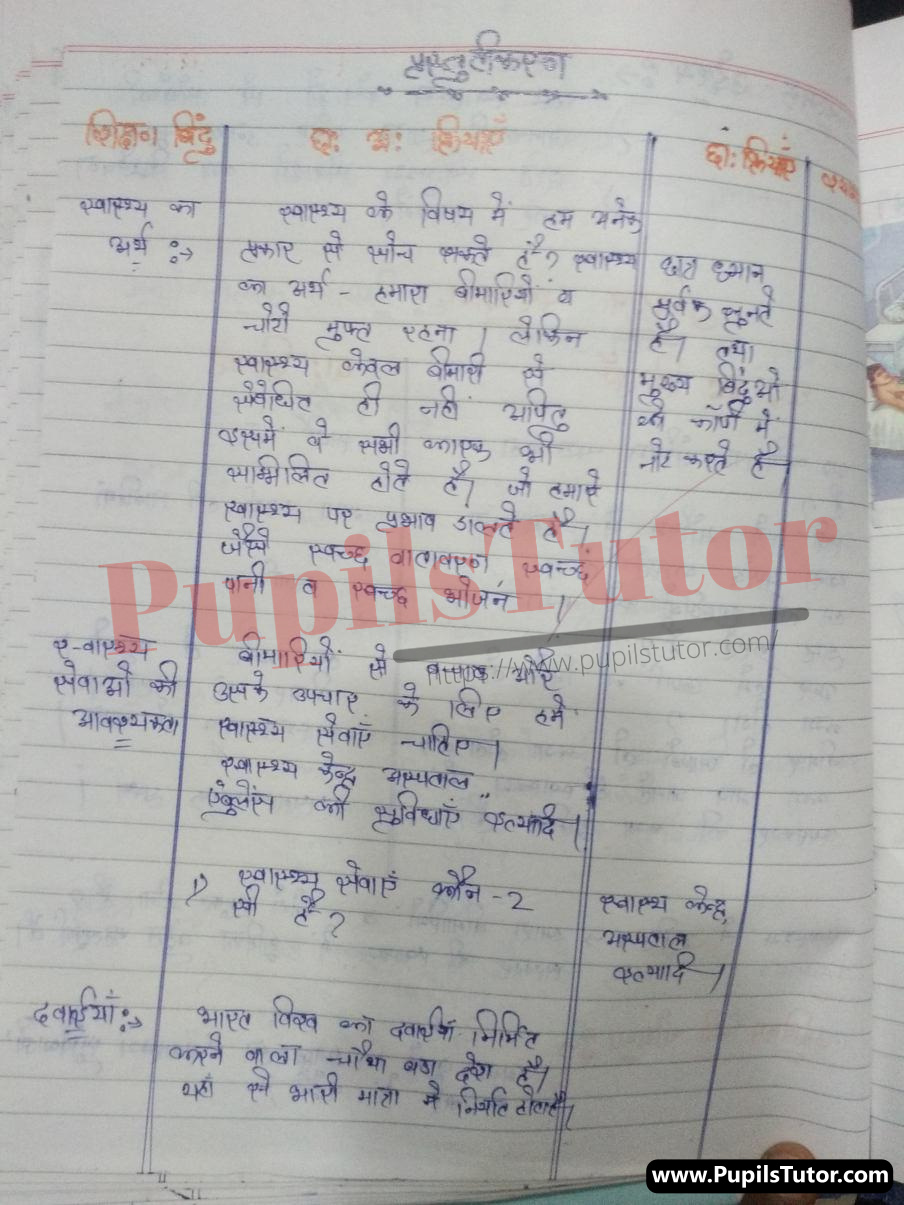 प्रस्तुतीकरण
शिक्षण बिंदु
छा: अ: क्रियाएँ
छा: क्रियाएँ
स्वास्थ्य का
अर्थ :->
स्वास्थ्य के विषय में हम अनेक
प्रकार से सोच सकते हैं? स्वास्थ्य
का अर्थ - हमारा बीमारियों व
चोटों मुक्त रहना । लेकिन
स्वास्थ्य केवल बीमारी से
संबंधित ही नहीं अपितु
इसमें वे सभी कारक भी
सम्मिलित होते हैं। जो हमारे
स्वास्थ्य पर प्रभाव डालते हैं।
जैसे स्वच्छ वातावरण स्वच्छ
पानी व स्वच्छ भोजन ।
छात्र ध्यान
पूर्वक सुनते
हैं। तथा
मुख्य बिंदुओ
को कॉपी में
नोट करते हैं
स्वास्थ्य
सेवाओं की
आवश्यकता
बीमारियों से बचाव और
उसके उपचार के लिए हमें
स्वास्थ्य सेवाएँ चाहिए।
स्वास्थ्य केन्द्र अस्पताल,
एंबुलेंस की सुविधाएँ इत्यादि।
स्वास्थ्य सेवाएं कौन-2
सी हैं?
स्वास्थ्य केन्द्र,
अस्पताल
इत्यादि
दवाईयाँ :->
भारत विश्व का दवाईयाँ निर्मित
करने वाला चौथा बड़ा देश है।
यहां से भारी मात्रा में निर्यात होता है।
PupilsTutor
https://www.pupilstutor.com/
www.PupilsTutor.com